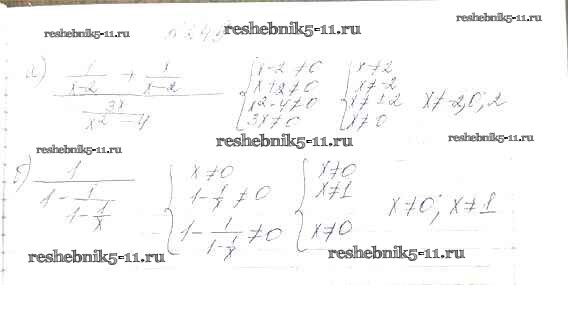 reshebnik5-11.ru
№ 249 reshebnik5-11.ru
reshebnik5-11.ru
а) (1/(x-2) + 1/(x-2)) / (3x/(x²-4)) { x-2≠0 { x≠2
x+2≠0 x≠-2
x²-4≠0 x≠±2 x≠-2;0;2
3x≠0 x≠0
reshebnik5-11.ru
reshebnik5-11.ru
reshebnik5-11.ru
б) 1/(1-1/(1-1/x)) { x≠0 { x≠0
1-1/x≠0 x≠1 x≠0; x≠1
1-1/(1-1/x)≠0 x≠0
reshebnik5-11.ru
reshebnik5-11.ru